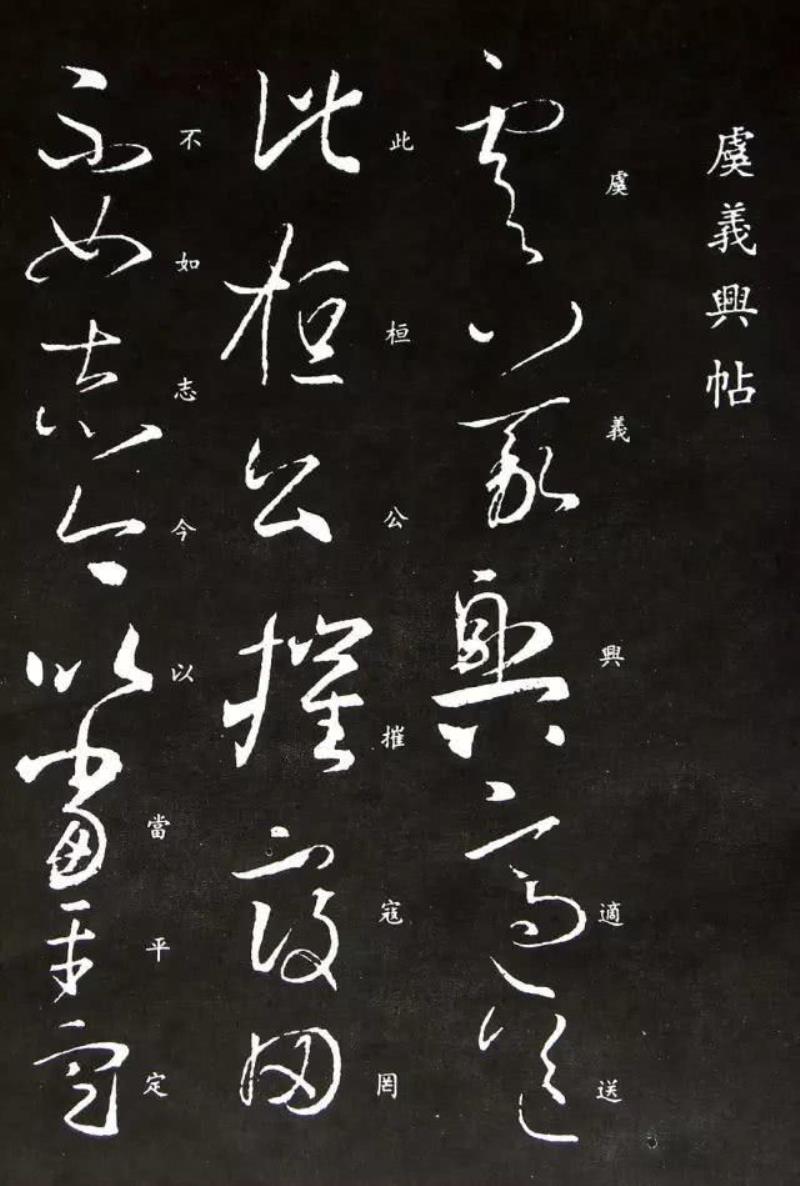 虞義興帖
虞義興適送
此桓公摧寇罔
不如志今以當平定